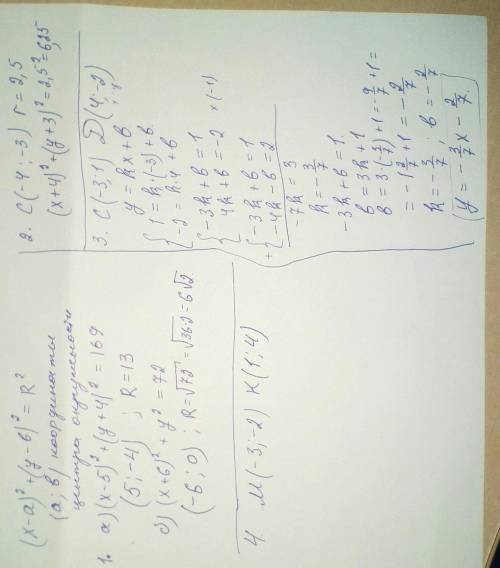 (x-a)² + (y-б)² = R²
(a; в) координаты
центра окружности
1. а) (x-5)² + (y+4)² = 169
(5; -4) ; R = 13
б) (x+6)² + y² = 72
(-6; 0) ; R = √72 = √36·2 = 6√2
4 M(-3; -2) K(1; 4)
2. C(-4; -3) r = 2,5
(x+4)² + (y+3)² = 2,5² = 6,25
3. C(-3; 1) D(4; -2)
y = kx + в
{ 1 = k·(-3) + в
-2 = k·4 + в
{ -3k + в = 1
4k + в = -2 ×(-1)
+ { -3k + в = 1
-4k - в = 2
-7k = 3
k = -3/7
-3k + в = 1
в = 3k + 1
в = 3·(-3/7) + 1 = -9/7 + 1 =
= -1 2/7 + 1 = -2/7
k = -3/7 ; в = -2/7
(y = -3/7 x - 2/7.